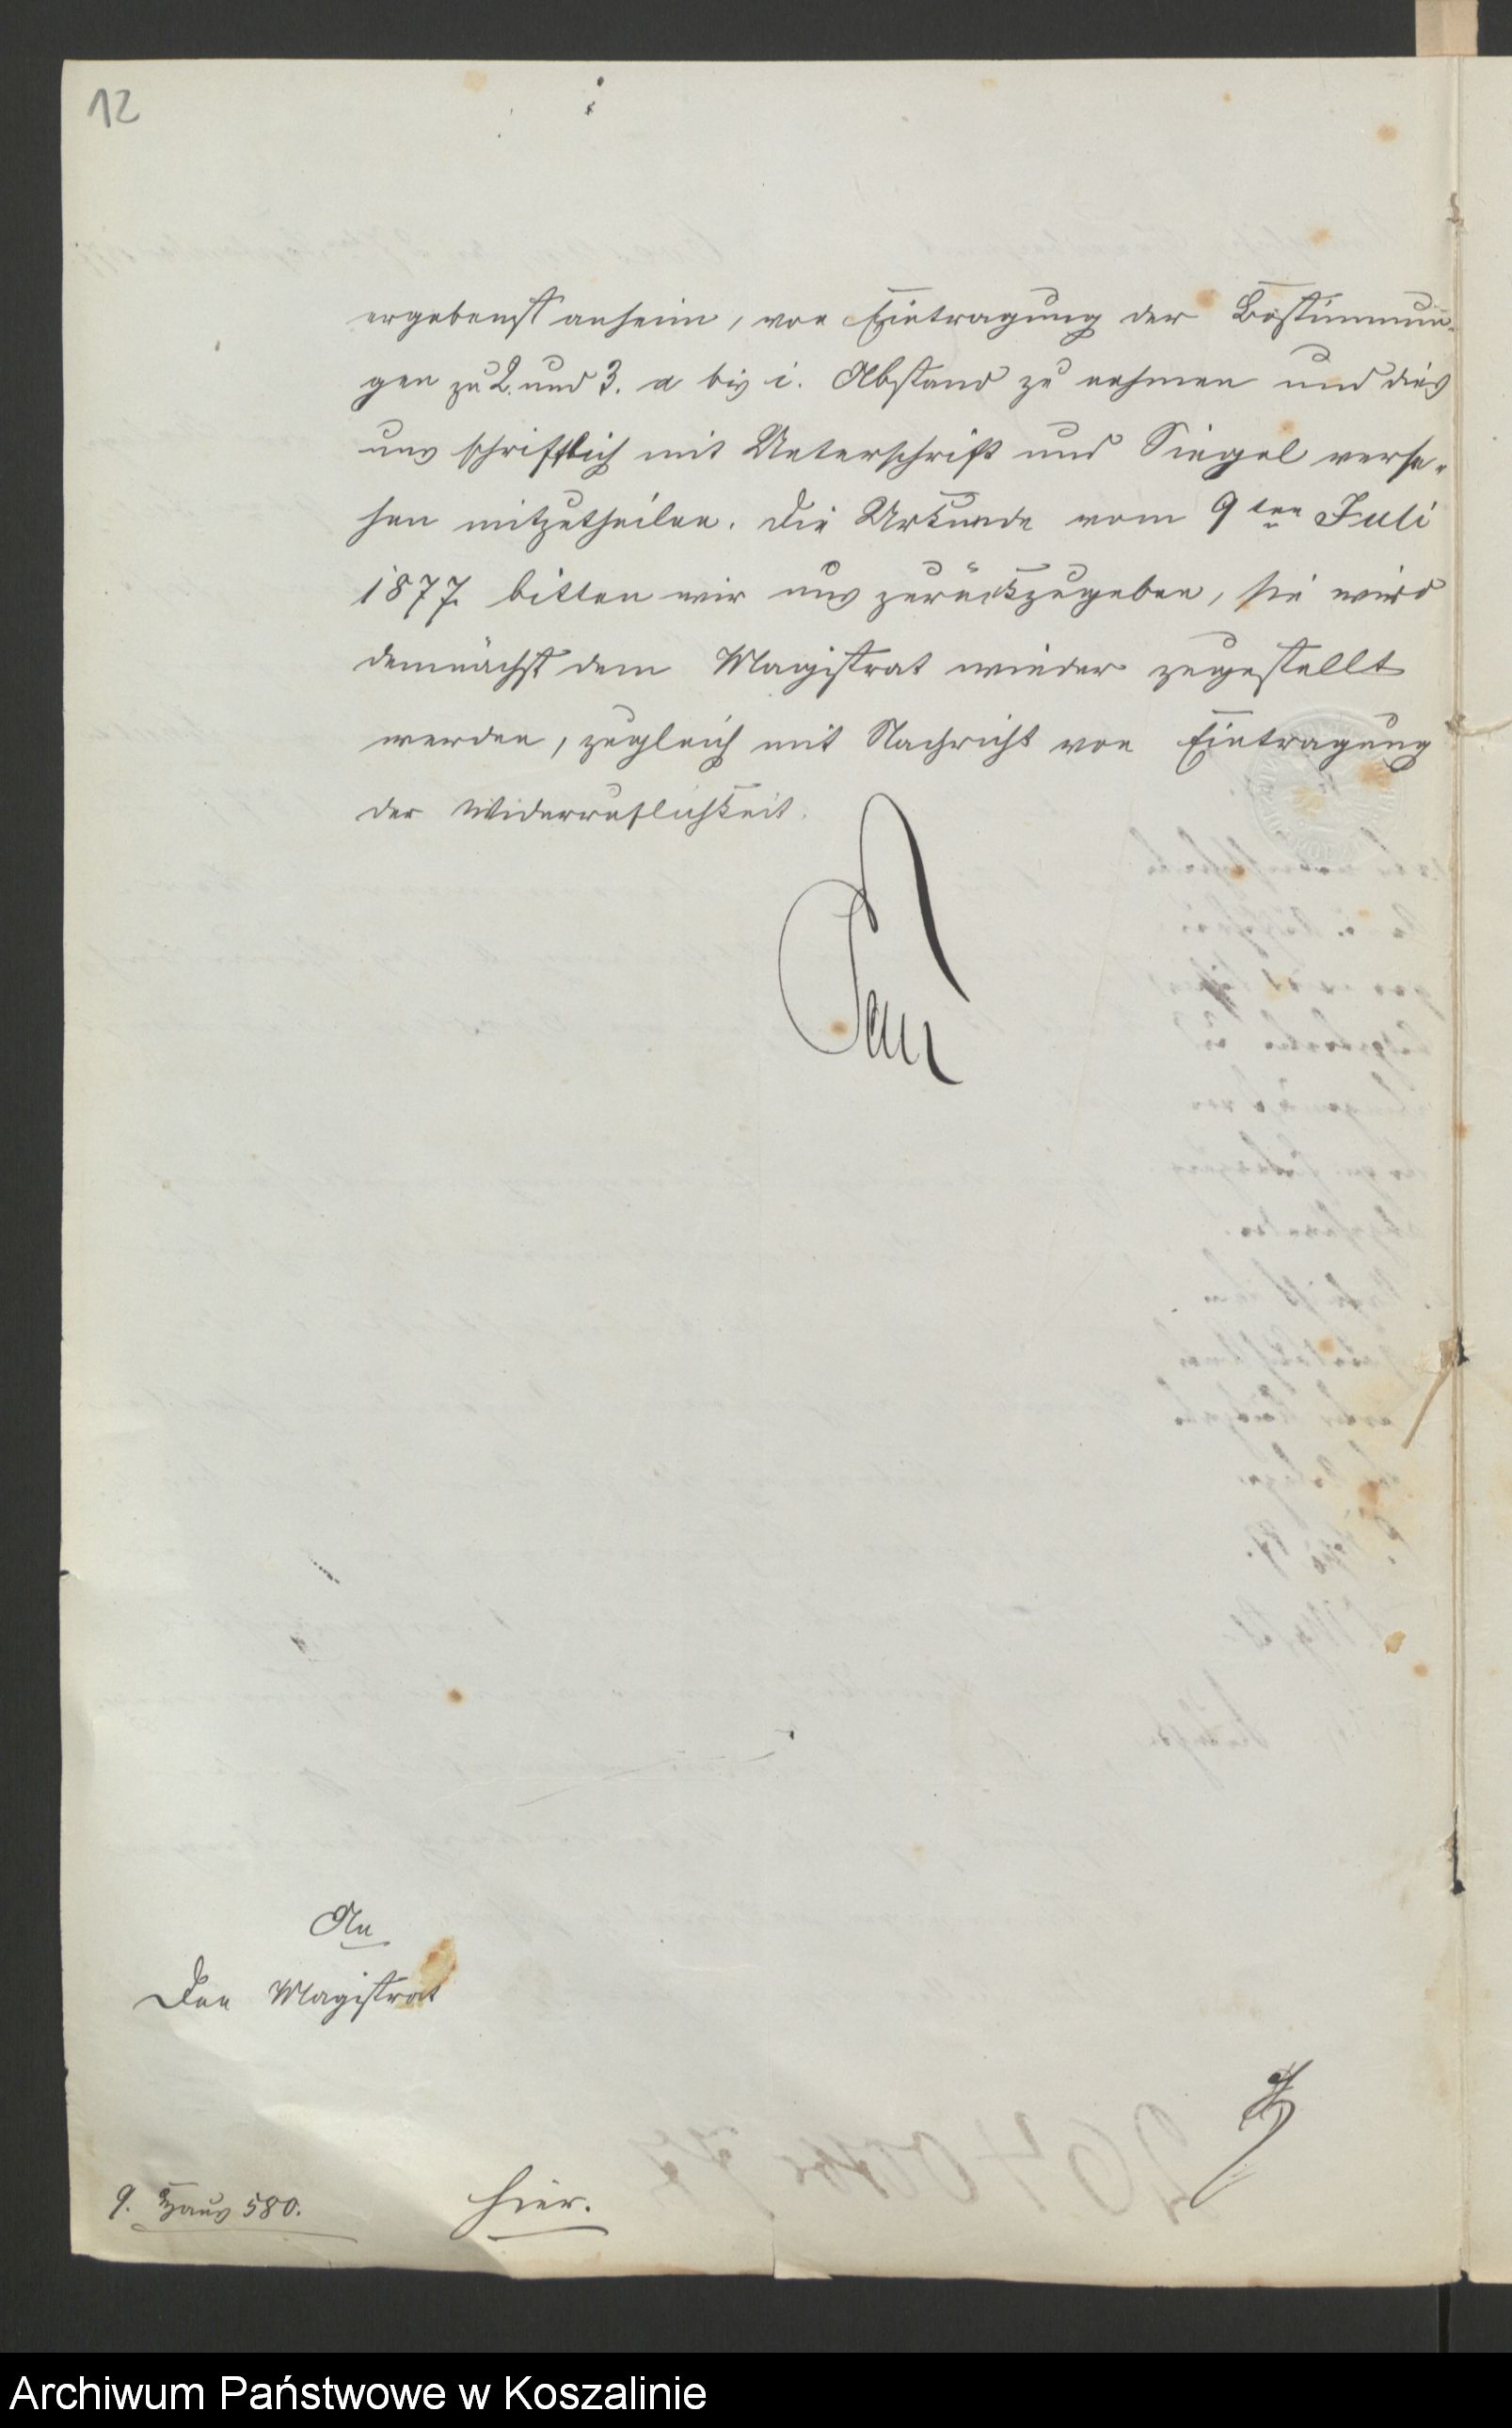 12
ergebenst anheim, von Eintragung der Bestimmun-
gen zu 2. und 3. a bis i. Abstand zu nehmen und dies
uns schriftlich mit Unterschrift und Siegel verse-
hen mitzutheilen. Die Urkunde vom 9ten Juli
1877. bitten wir uns zurückzugeben, sie wird
demnächst dem Magistrat wieder zugestellt
werden, zugleich mit Nachricht von Eintragung
der Widerruflichkeit.
An
Den Magistrat
hier.
9. Haus 580.
Archiwum Państwowe w Koszalinie